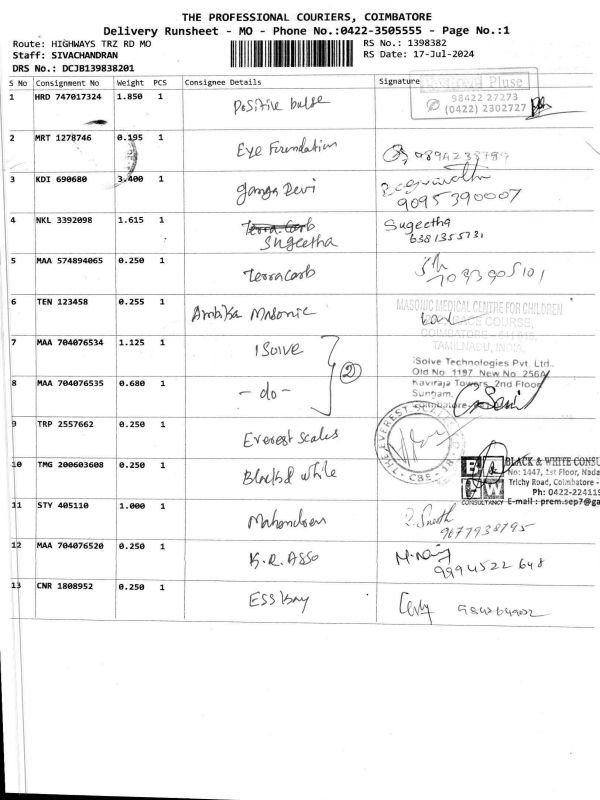 THE PROFESSIONAL COURIERS, COIMBATORE
Delivery Runsheet - MO - Phone No.:0422-3505555 - Page No.:1
Route: HIGHWAYS TRZ RD MO
RS No.: 1398382
Staff: SIVACHANDRAN
RS Date: 17-Jul-2024
DRS No.: DCJB139838201
S No Consignment No Weight PCS Consignee Details Signature
1 HRD 747017324 1.850 1 Positive pulse
Pluse
98422 27273
(0422) 2302727
2 MRT 1278746 0.195 1 Eye Foundation
3 KDI 690680 3.400 1 ganga Devi
9095390007
4 NKL 3392098 1.615 1 Terra Carb Sugeetha
Sugeetha 6381355731
5 MAA 574894065 0.250 1 Terracarb
6 TEN 123458 0.255 1 Ambika Masonic
MASONIC MEDICAL CENTRE FOR CHILDREN
RACE COURSE,
COIMBATORE
TAMILNADU, INDIA.
7 MAA 704076534 1.125 1 ISolve
iSolve Technologies Pvt. Ltd.,
Old No 1197 New No 256A
8 MAA 704076535 0.680 1 - do - 2
Kaviraja Towers, 2nd Floor
Sungam,
Coimbatore
9 TRP 2557662 0.250 1 Everest Scales
THE EVEREST CBE
10 TMG 200603608 0.250 1 Black & white
BLACK & WHITE CONSU
No: 1447, 1st Floor, Nada
Trichy Road, Coimbatore -
Ph: 0422-22411
CONSULTANCY E-mail : prem.sep7@ga
11 STY 405110 1.000 1 Mahendran
9677938795
12 MAA 704076520 0.250 1 K.R. ASSO
9994522648
13 CNR 1808952 0.250 1 ESSKAY